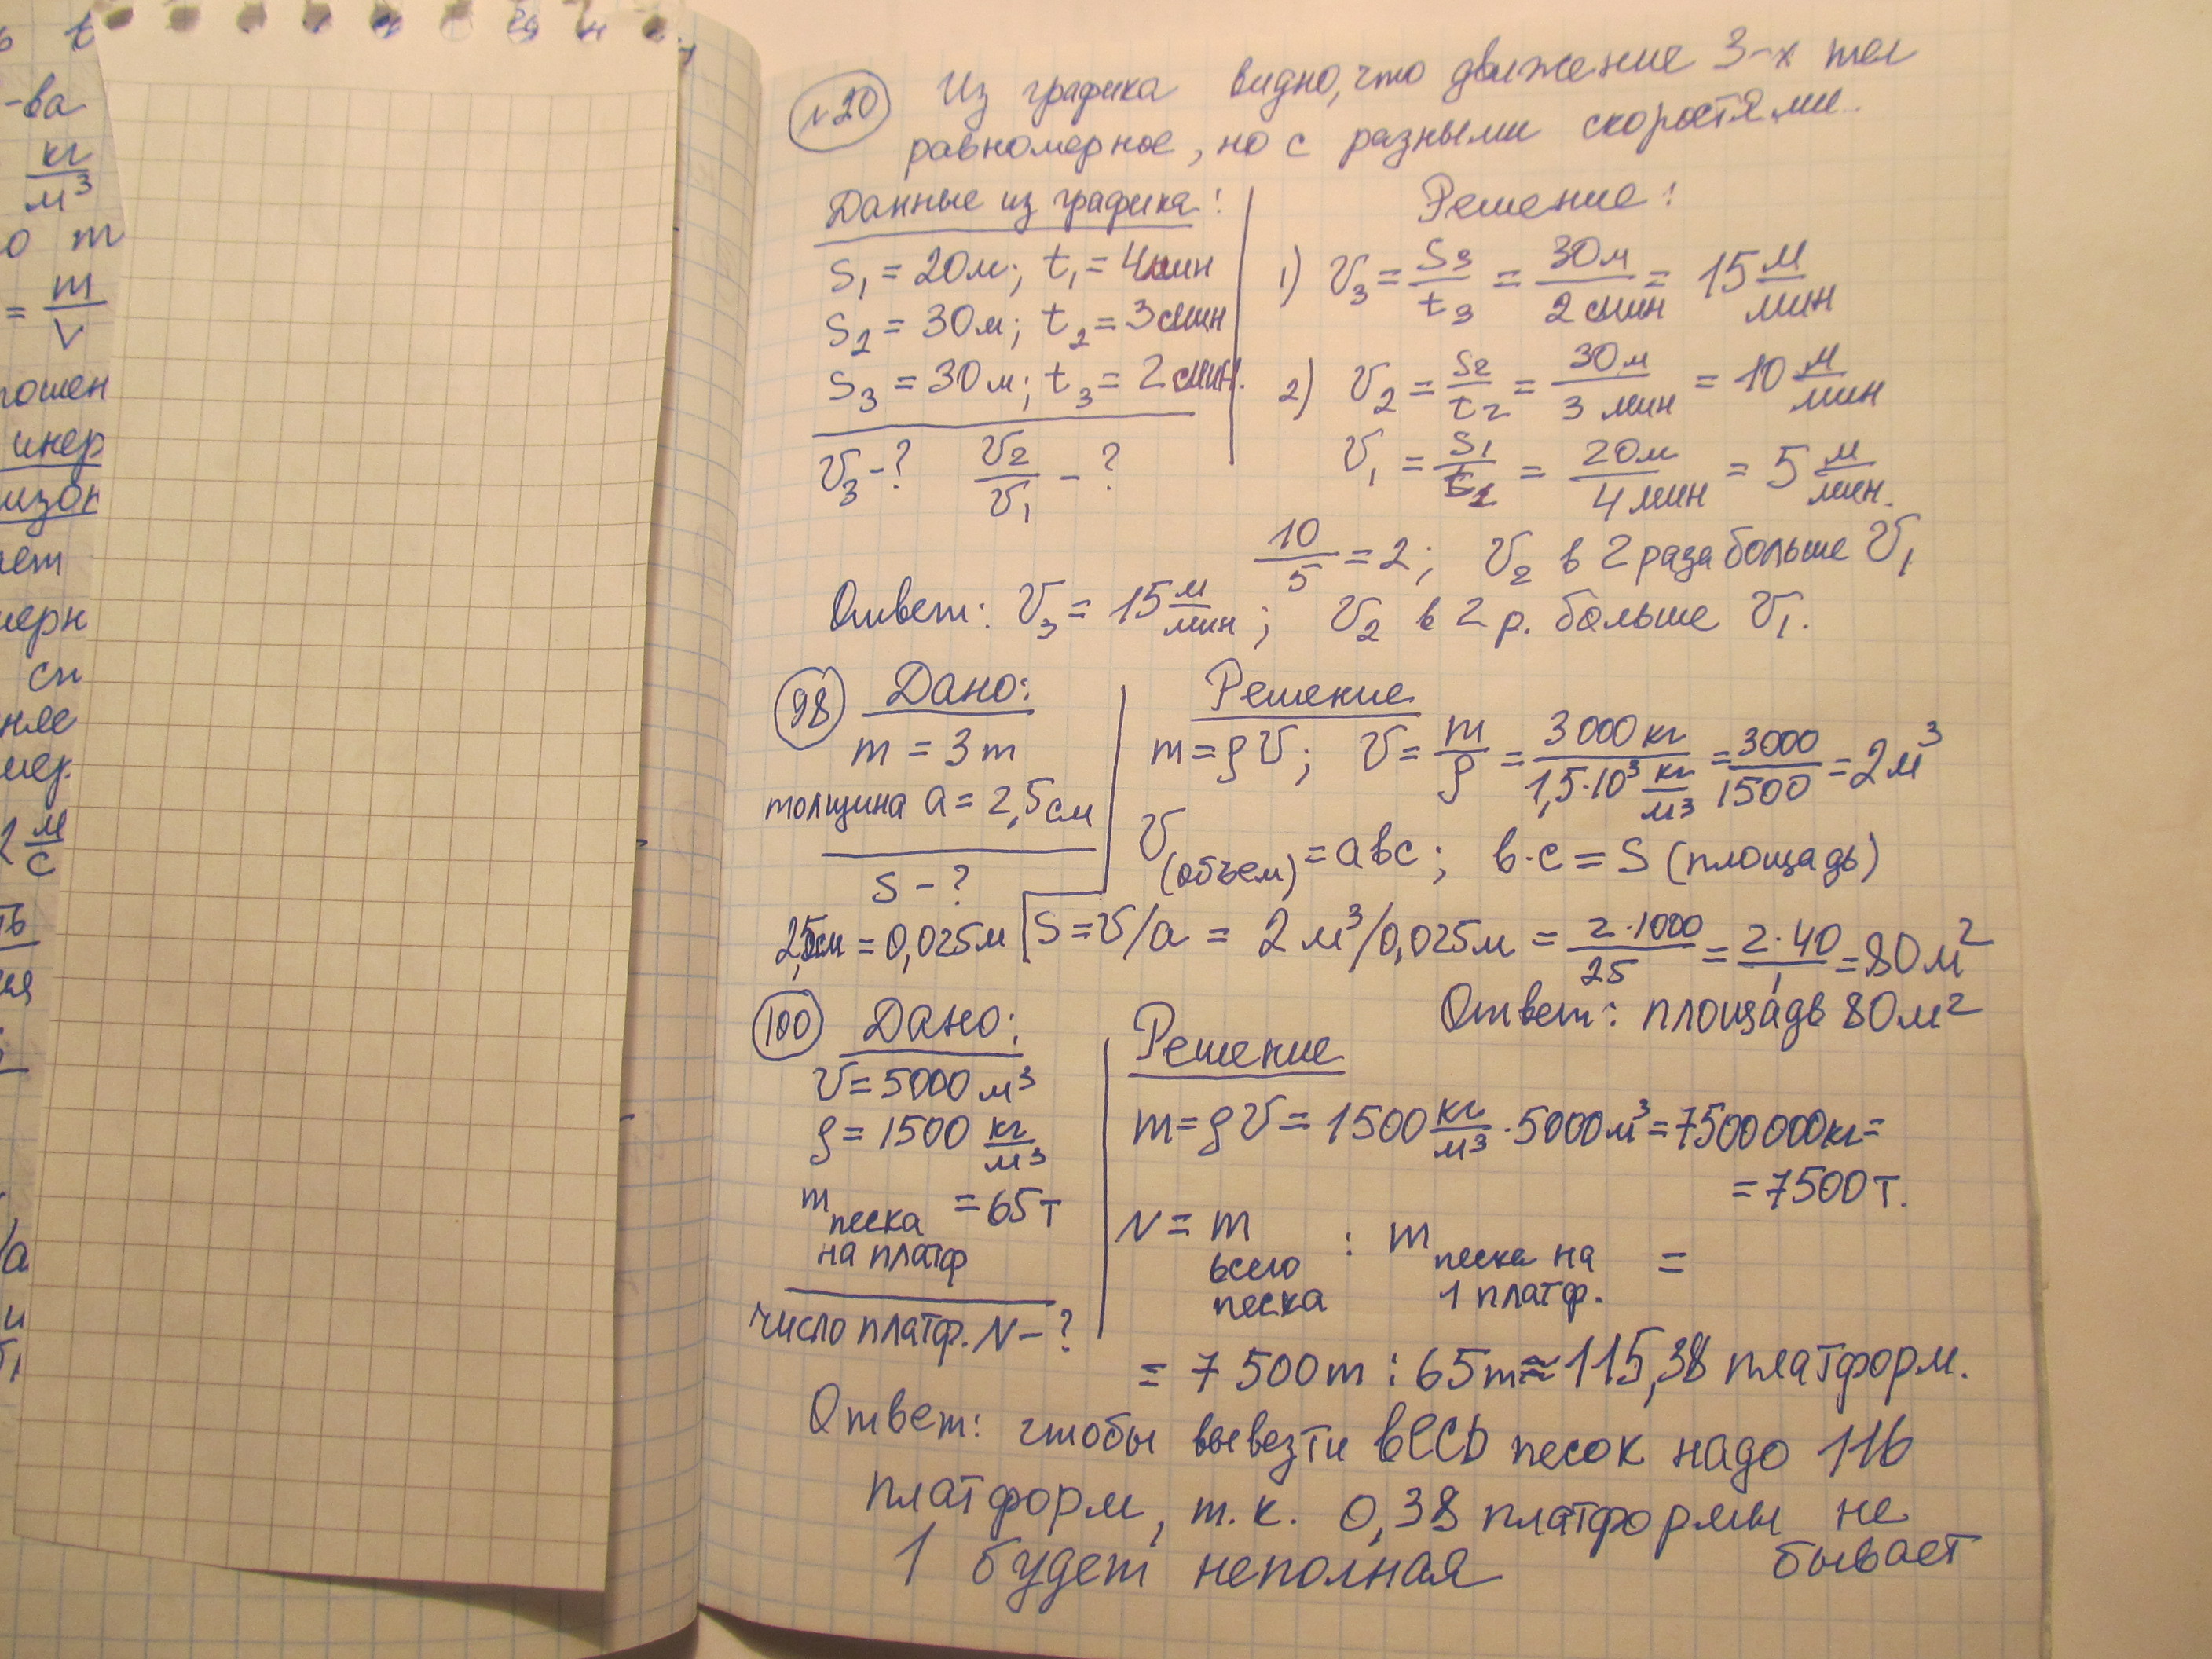 t
-ва
кг
м³
о m
= m
V
кг
№20 Из графика видно, что движение 3-х тел
равномерное, но с разными скоростями.
Данные из графика:
S₁ = 20м; t₁ = 4мин
S₂ = 30м; t₂ = 3мин
S₃ = 30м; t₃ = 2мин.
V₃ - ? V₂/V₁ - ?
Решение:
1) V₃ = S₃/t₃ = 30м/2мин = 15 м/мин
2) V₂ = S₂/t₂ = 30м/3мин = 10 м/мин
V₁ = S₁/t₁ = 20м/4мин = 5 м/мин.
10/5 = 2; V₂ в 2 раза больше V₁
Ответ: V₃ = 15 м/мин; V₂ в 2 р. больше V₁.
98 Дано:
m = 3т
толщина a = 2,5см
S - ?
2,5см = 0,025м
Решение
m = ρV; V = m/ρ = 3000кг/1,5·10³ кг/м³ = 3000/1500 = 2м³
V(объем) = авс; в·с = S (площадь)
S = V/a = 2м³/0,025м = 2·1000/25 = 2·40/1 = 80м²
Ответ: площадь 80м²
100 Дано:
V = 5000м³
ρ = 1500 кг/м³
m песка на платф = 65т
число платф. N - ?
Решение
m = ρV = 1500 кг/м³ · 5000м³ = 7500000кг =
= 7500т.
N = m всего песка : m песка на 1 платф. =
= 7500т : 65т ≈ 115,38 платформ.
Ответ: чтобы вывезти весь песок надо 116
платформ, т.к. 0,38 платформы не
бывает
1 будет неполная